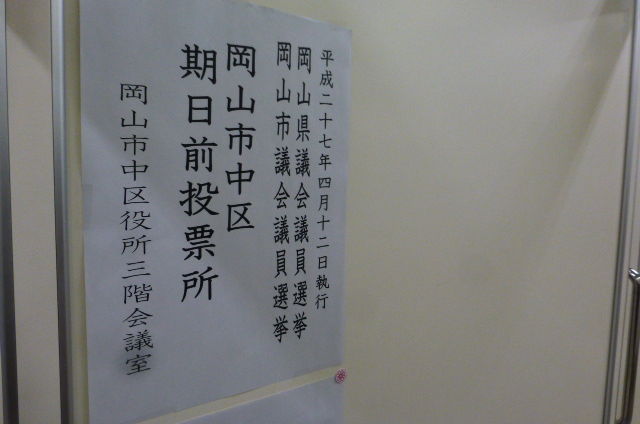 平成二十七年四月十二日執行
岡山県議会議員選挙
岡山市議会議員選挙
岡山市中区
期日前投票所
岡山市中区役所三階会議室